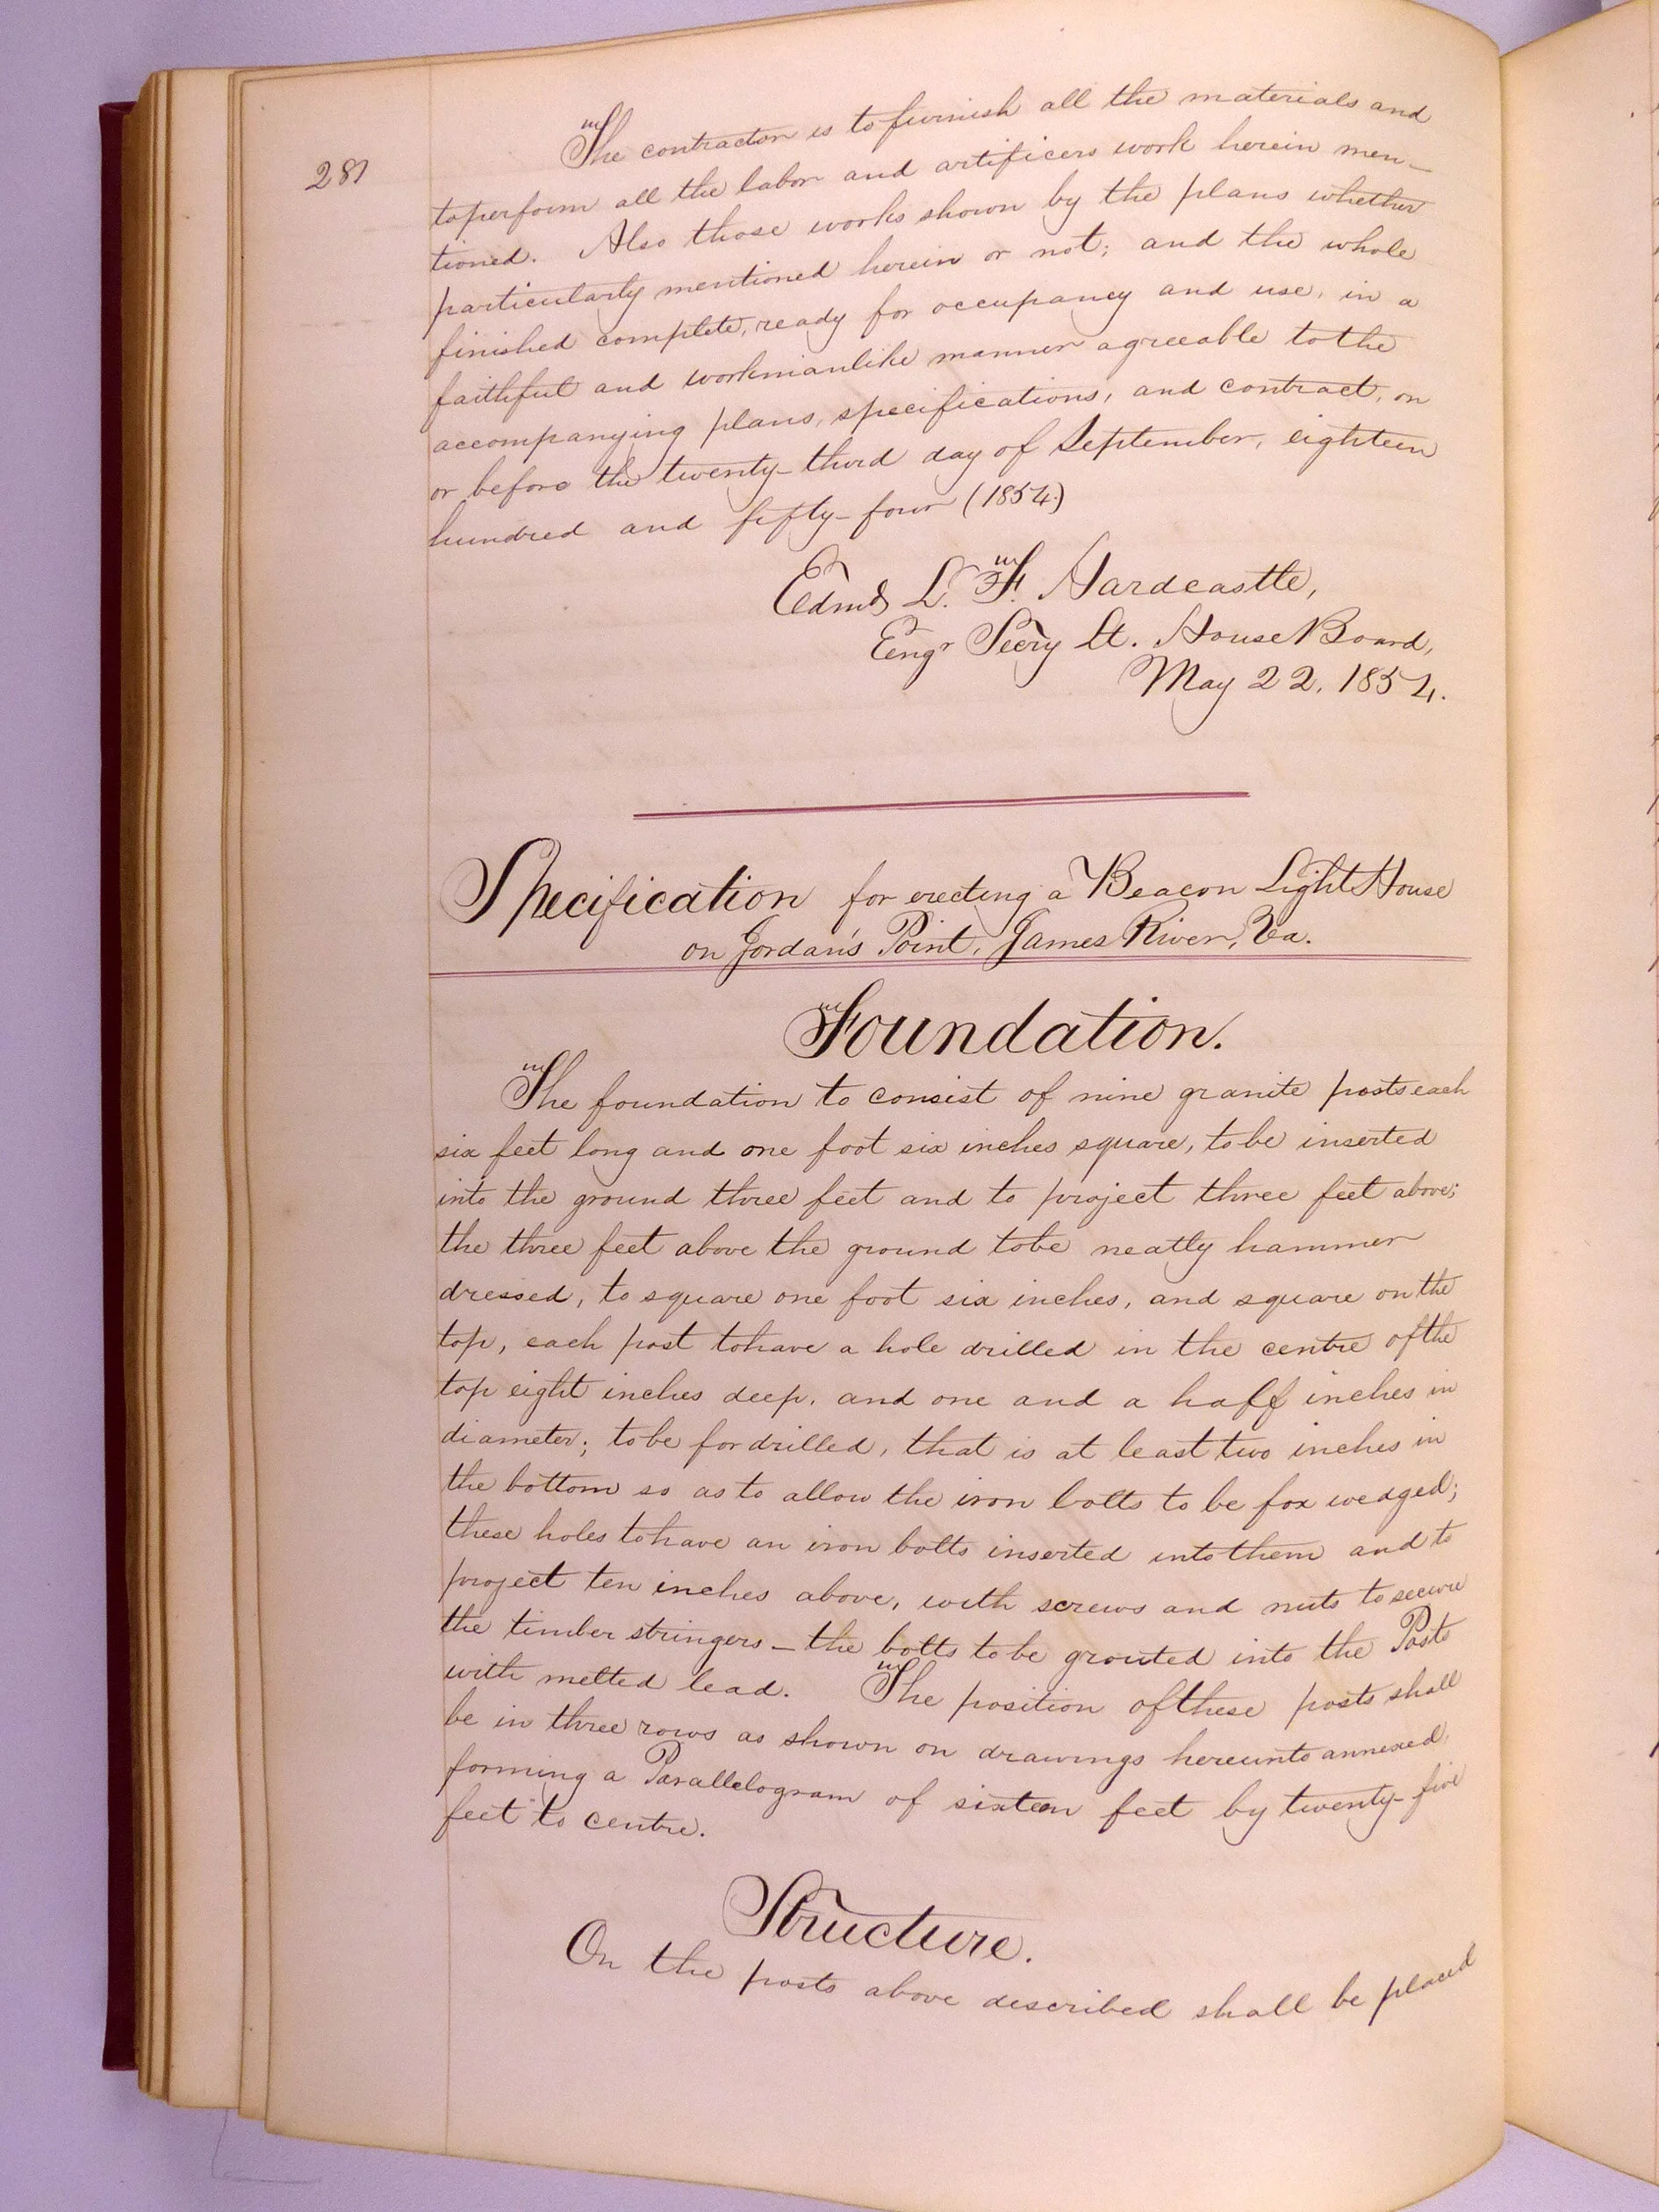 281
The contractor is to furnish all the materials and
to perform all the labor and artificers work herein men-
tioned. Also those works shown by the plans whether
particularly mentioned herein or not; and the whole
finished complete, ready for occupancy and use, in a
faithful and workmanlike manner agreeable to the
accompanying plans, specifications, and contract, on
or before the twenty-third day of September, eighteen
hundred and fifty-four (1854.)
Edmd L. F. Hardcastle,
Engr Secry Lt. House Board,
May 22, 1854.
Specification for erecting a Beacon Light House
on Jordan's Point, James River, Va.
Foundation.
The foundation to consist of nine granite posts each
six feet long and one foot six inches square, to be inserted
into the ground three feet and to project three feet above;
the three feet above the ground to be neatly hammer
dressed, to square one foot six inches, and square on the
top, each post to have a hole drilled in the centre of the
top eight inches deep, and one and a half inches in
diameter; to be for drilled, that is at least two inches in
the bottom so as to allow the iron bolts to be fox wedged;
these holes to have an iron bolts inserted into them and to
project ten inches above, with screws and nuts to secure
the timber stringers - the bolts to be grouted into the Posts
with melted lead. The position of these posts shall
be in three rows as shown on drawings hereunto annexed,
forming a Parallelogram of sixteen feet by twenty-five
feet to centre.
Structure.
On the posts above described shall be placed